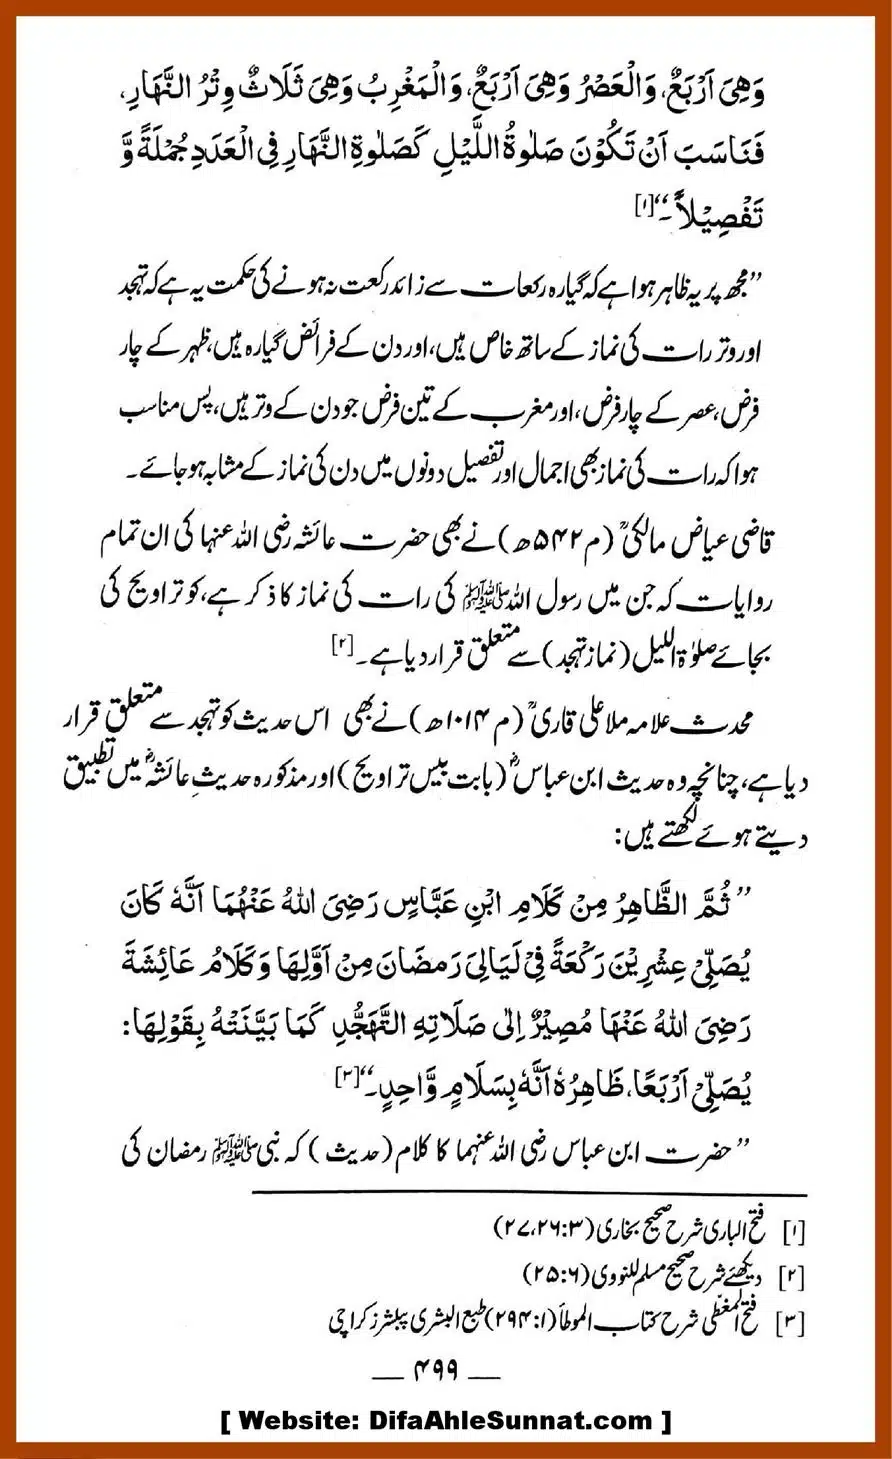 وَهِیَ اَرْبَعٌ، وَالْعَصْرُ وَهِیَ اَرْبَعٌ، وَالْمَغْرِبُ وَهِیَ ثَلَاثٌ وِتْرُ النَّهَارِ،
فَنَاسَبَ اَنْ تَکُوْنَ صَلٰوةُ اللَّیْلِ کَصَلٰوةِ النَّهَارِ فِی الْعَدَدِ جُمْلَةً وَّ
تَفْصِیْلاً۔‘‘[۱]
’’مجھ پر یہ ظاہر ہوا ہے کہ گیارہ رکعات سے زائد رکعت نہ ہونے کی حکمت یہ ہے کہ تہجد
اور وتر رات کی نماز کے ساتھ خاص ہیں، اور دن کے فرائض گیارہ ہیں، ظہر کے چار
فرض، عصر کے چار فرض، اور مغرب کے تین فرض جو دن کے وتر ہیں، پس مناسب
ہوا کہ رات کی نماز بھی اجمال اور تفصیل دونوں میں دن کی نماز کے مشابہ ہو جائے۔
قاضی عیاض مالکیؒ (م۵۴۲ھ) نے بھی حضرت عائشہ رضی اللہ عنہا کی ان تمام
روایات کہ جن میں رسول اللہ ﷺ کی رات کی نماز کا ذکر ہے، کو تراویح کی
بجائے صلوٰۃ اللیل (نماز تہجد) سے متعلق قرار دیا ہے۔[۲]
محدث علامہ ملا علی قاریؒ (م ۱۰۱۴ھ) نے بھی اس حدیث کو تہجد سے متعلق قرار
دیا ہے، چنانچہ وہ حدیث ابن عباسؓ (بابت بیس تراویح) اور مذکورہ حدیثِ عائشہؓ میں تطبیق
دیتے ہوئے لکھتے ہیں:
’’ثُمَّ الظَّاهِرُ مِنْ کَلَامِ ابْنِ عَبَّاسٍ رَضِیَ اللهُ عَنْهُمَا اَنَّهٗ کَانَ
یُصَلِّیْ عِشْرِیْنَ رَکْعَةً فِیْ لَیَالِیَ رَمضَانَ مِنْ اَوَّلِهَا وَکَلَامُ عَائِشَةَ
رَضِیَ اللهُ عَنْهَا مُصِیْرٌ اِلٰی صَلَاتِهِ التَّهَجُّدِ کَمَا بَیَّنَتْهُ بِقَوْلِهَا:
یُصَلِّیْ اَرْبَعًا، ظَاهِرُهٗ اَنَّهٗ بِسَلَامٍ وَّاحِدٍ۔‘‘[۳]
’’حضرت ابن عباس رضی اللہ عنہما کا کلام (حدیث) کہ نبی ﷺ رمضان کی
[۱] فتح الباری شرح صحیح بخاری (۳:۲۶،۲۷)
[۲] دیکھئے شرح صحیح مسلم للنووی (۶:۲۵)
[۳] فتح المغطّی شرح کتاب الموطأ (۱:۲۹۴) طبع البشری پبلشرز کراچی
— ۴۹۹ —
[ Website: DifaAhleSunnat.com ]